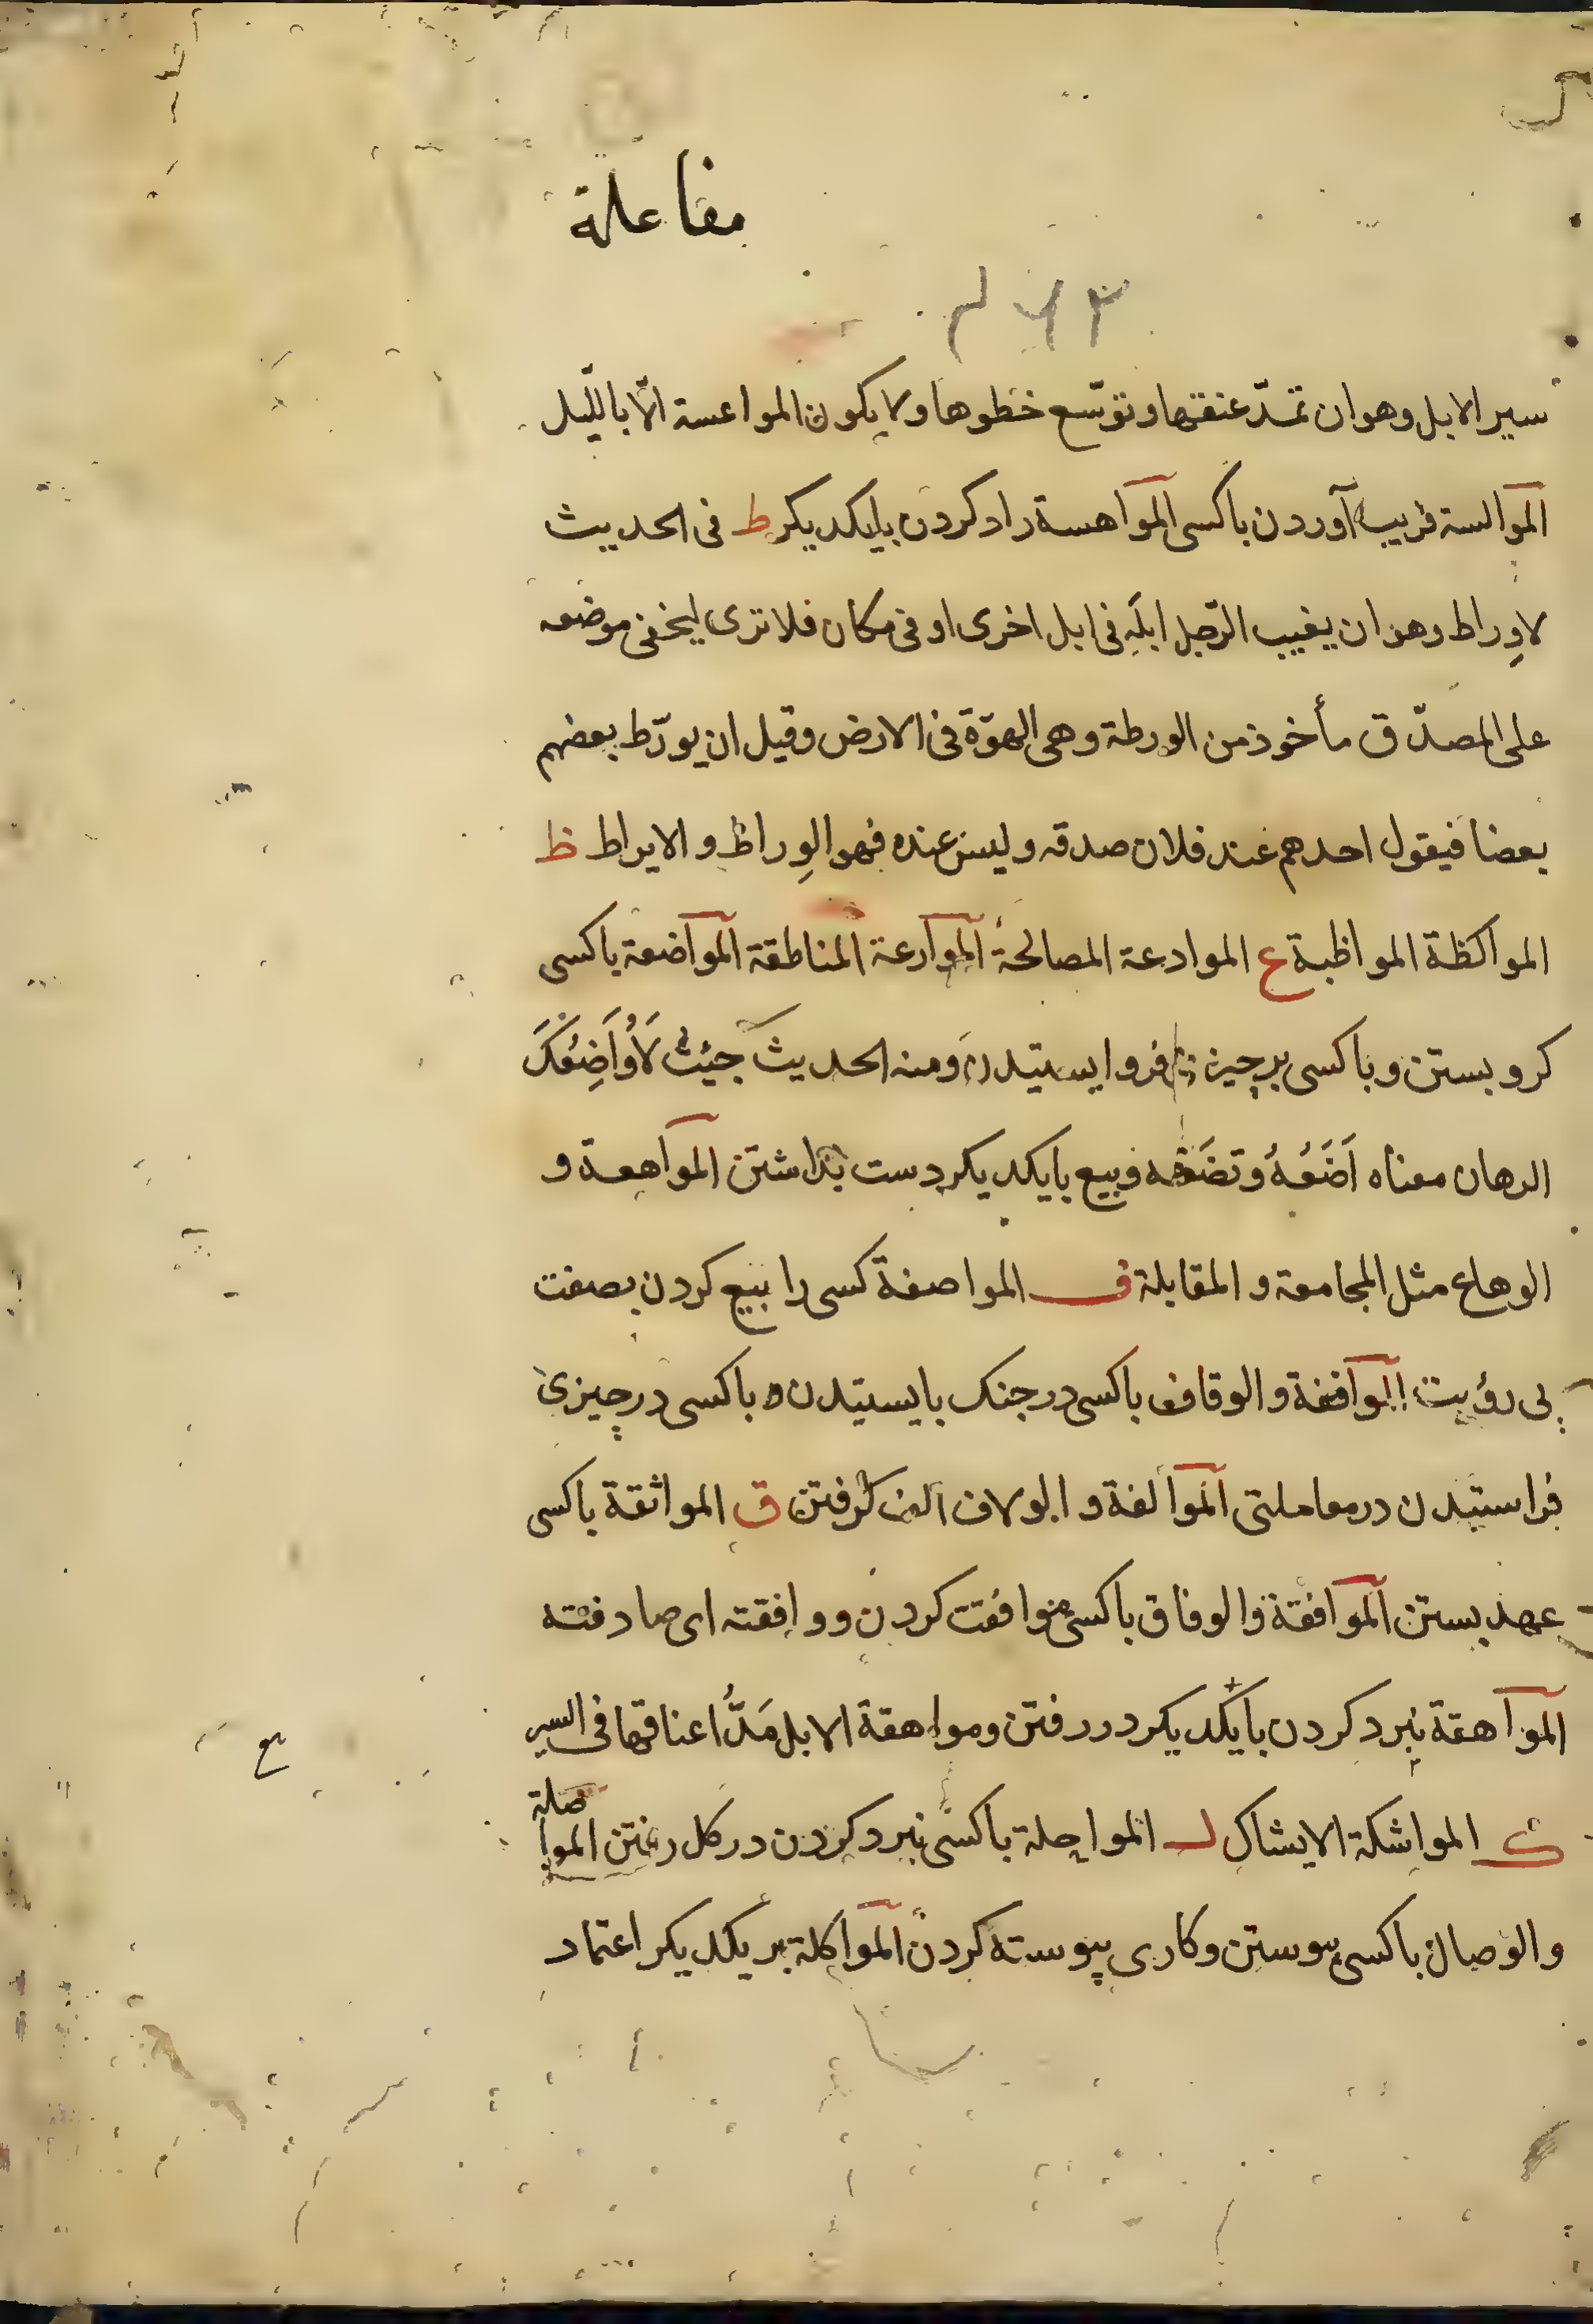 مفاعلة
سير الابل وهو ان تمدّ عنقها و توسّع خطوها ولا يكون المواعسة الّا بالليّل
المؤالسة فريب آوردن باكسى المواهسة راد كردن بايكديكر ط فى الحديث
لاوِراط وهو ان يغيب الرّجل ابلَه فى ابل اخرى او فى مكان فلا ترى ليخفى موضعه
على المصدّق مأخوذ من الورطة وهى الهوّة فى الارض وقيل ان يورّط بعضهم
بعضا فيقول احدهم عند فلان صدقه وليس عنده فهو الوِراط و الايراط ظ
المواكظة المواظبة ع الموادعة المصالحة الموارعة المناطقة المواضعة باكسى
كرو بستن و باكسى برچيز فرو ايستيدن ومنه الحديث جيئتُ لَاُواَضِعُكَ
الرهان معناه اَضَعُهُ وتضَعَه وبيع بايكديكر دست بداشتن المواهعة و
الوهاع مثل المجامعة و المقابلة ف المواصفة كسى را بيع كردن بصفت
بى رؤيت المواقفة و الوقاف باكسى درجنك بايستيدن و باكسى درچيزى
فراستيدن درمعاملتى الموالفة و الولاف الف كرفتن ق المواثقة باكسى
عهد بستن الموافقة والوفاق باكسى موافقت كردن ووافقته اى صادفته
المواهقة نبرد كردن بايكديكر دررفتن ومواهقة الابل مَدُّ اعناقها فى السير
ك المواشكة الايشاك ل المواحلة باكسى نبرد كردن دركل رفتن المواصلة
والوصال باكسى پيوستن وكارى پيوسته كردن المواكلة بر يكديكر اعتماد